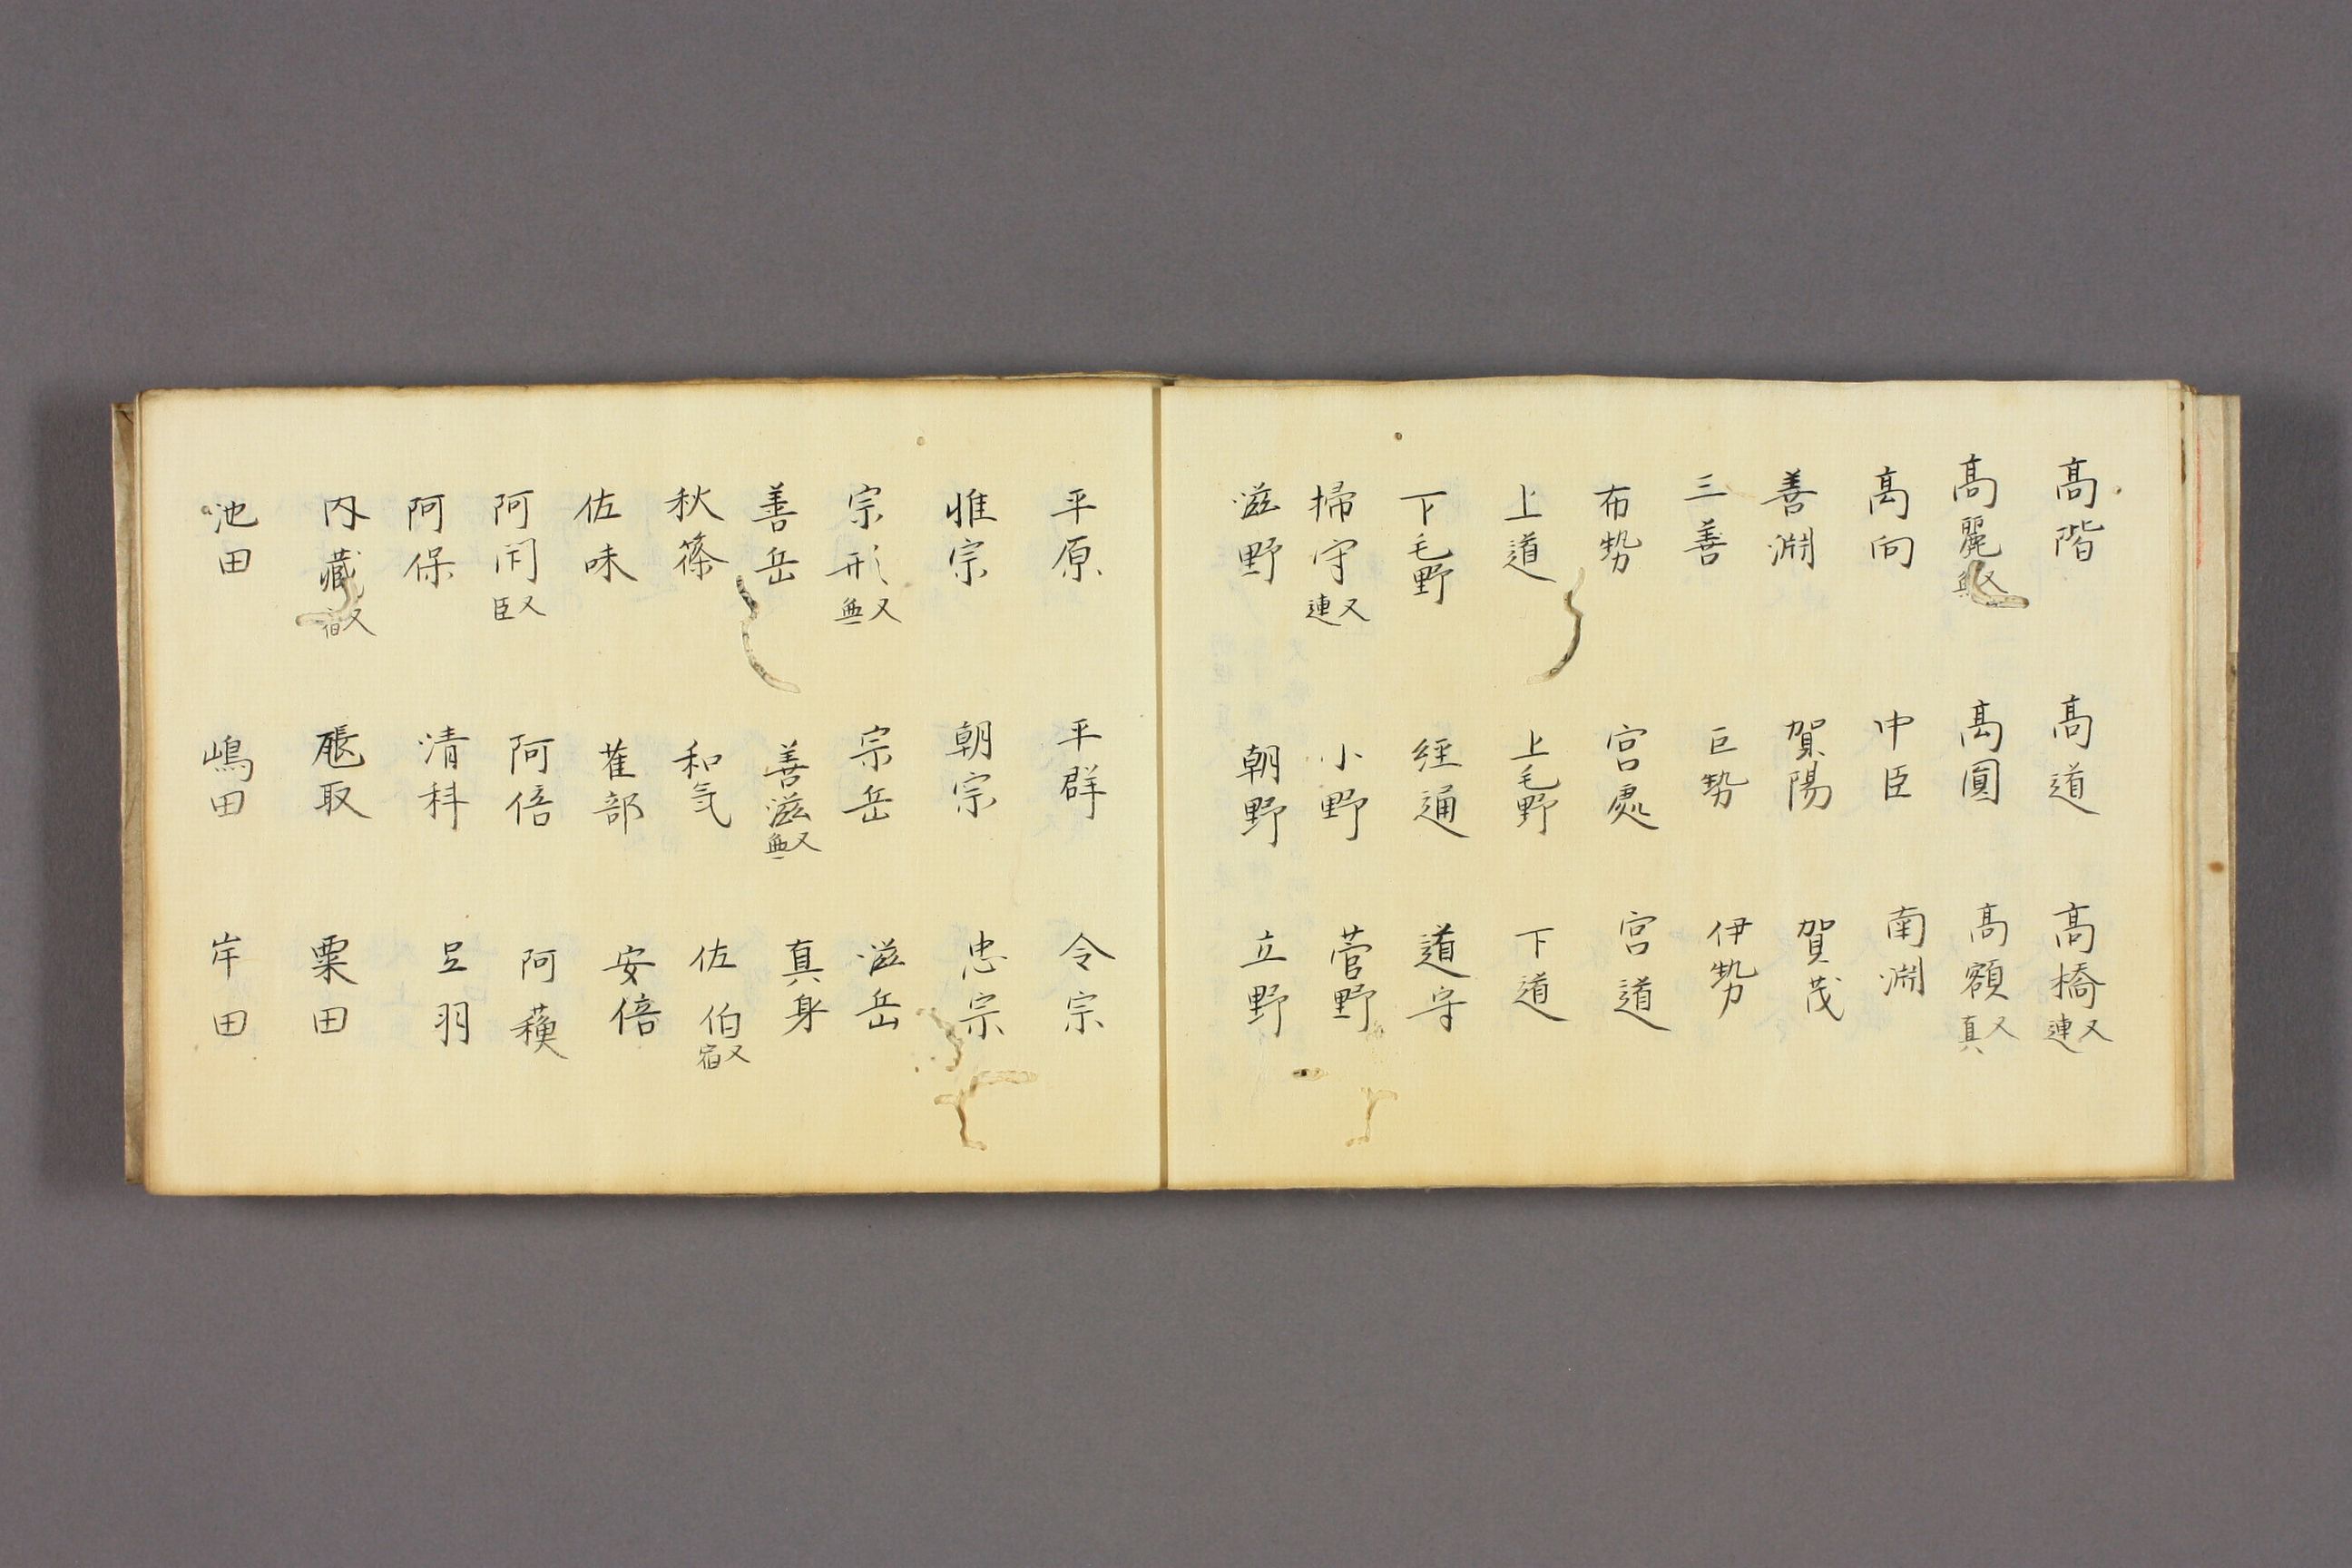 高階 高道 高橋 又連
高麗 高圓 高額 又真
高向 中臣 南淵
善淵 賀陽 賀茂
三善 巨勢 伊勢
布勢 宮處 宮道
上道 上毛野 下道
下毛野 經通 道守
掃守 又連 小野 菅野
滋野 朝野 立野
平原 平群 令宗
惟宗 朝宗 忠宗
宗形 又無 宗岳 滋岳
善岳 善滋 又無 真身
秋篠 和气 佐伯 又宿
佐味 雀部 安倍
阿閇 又臣 阿倍 阿蘓
阿保 清科 呈羽
内藏 又宿 取 粟田
池田 嶋田 岸田